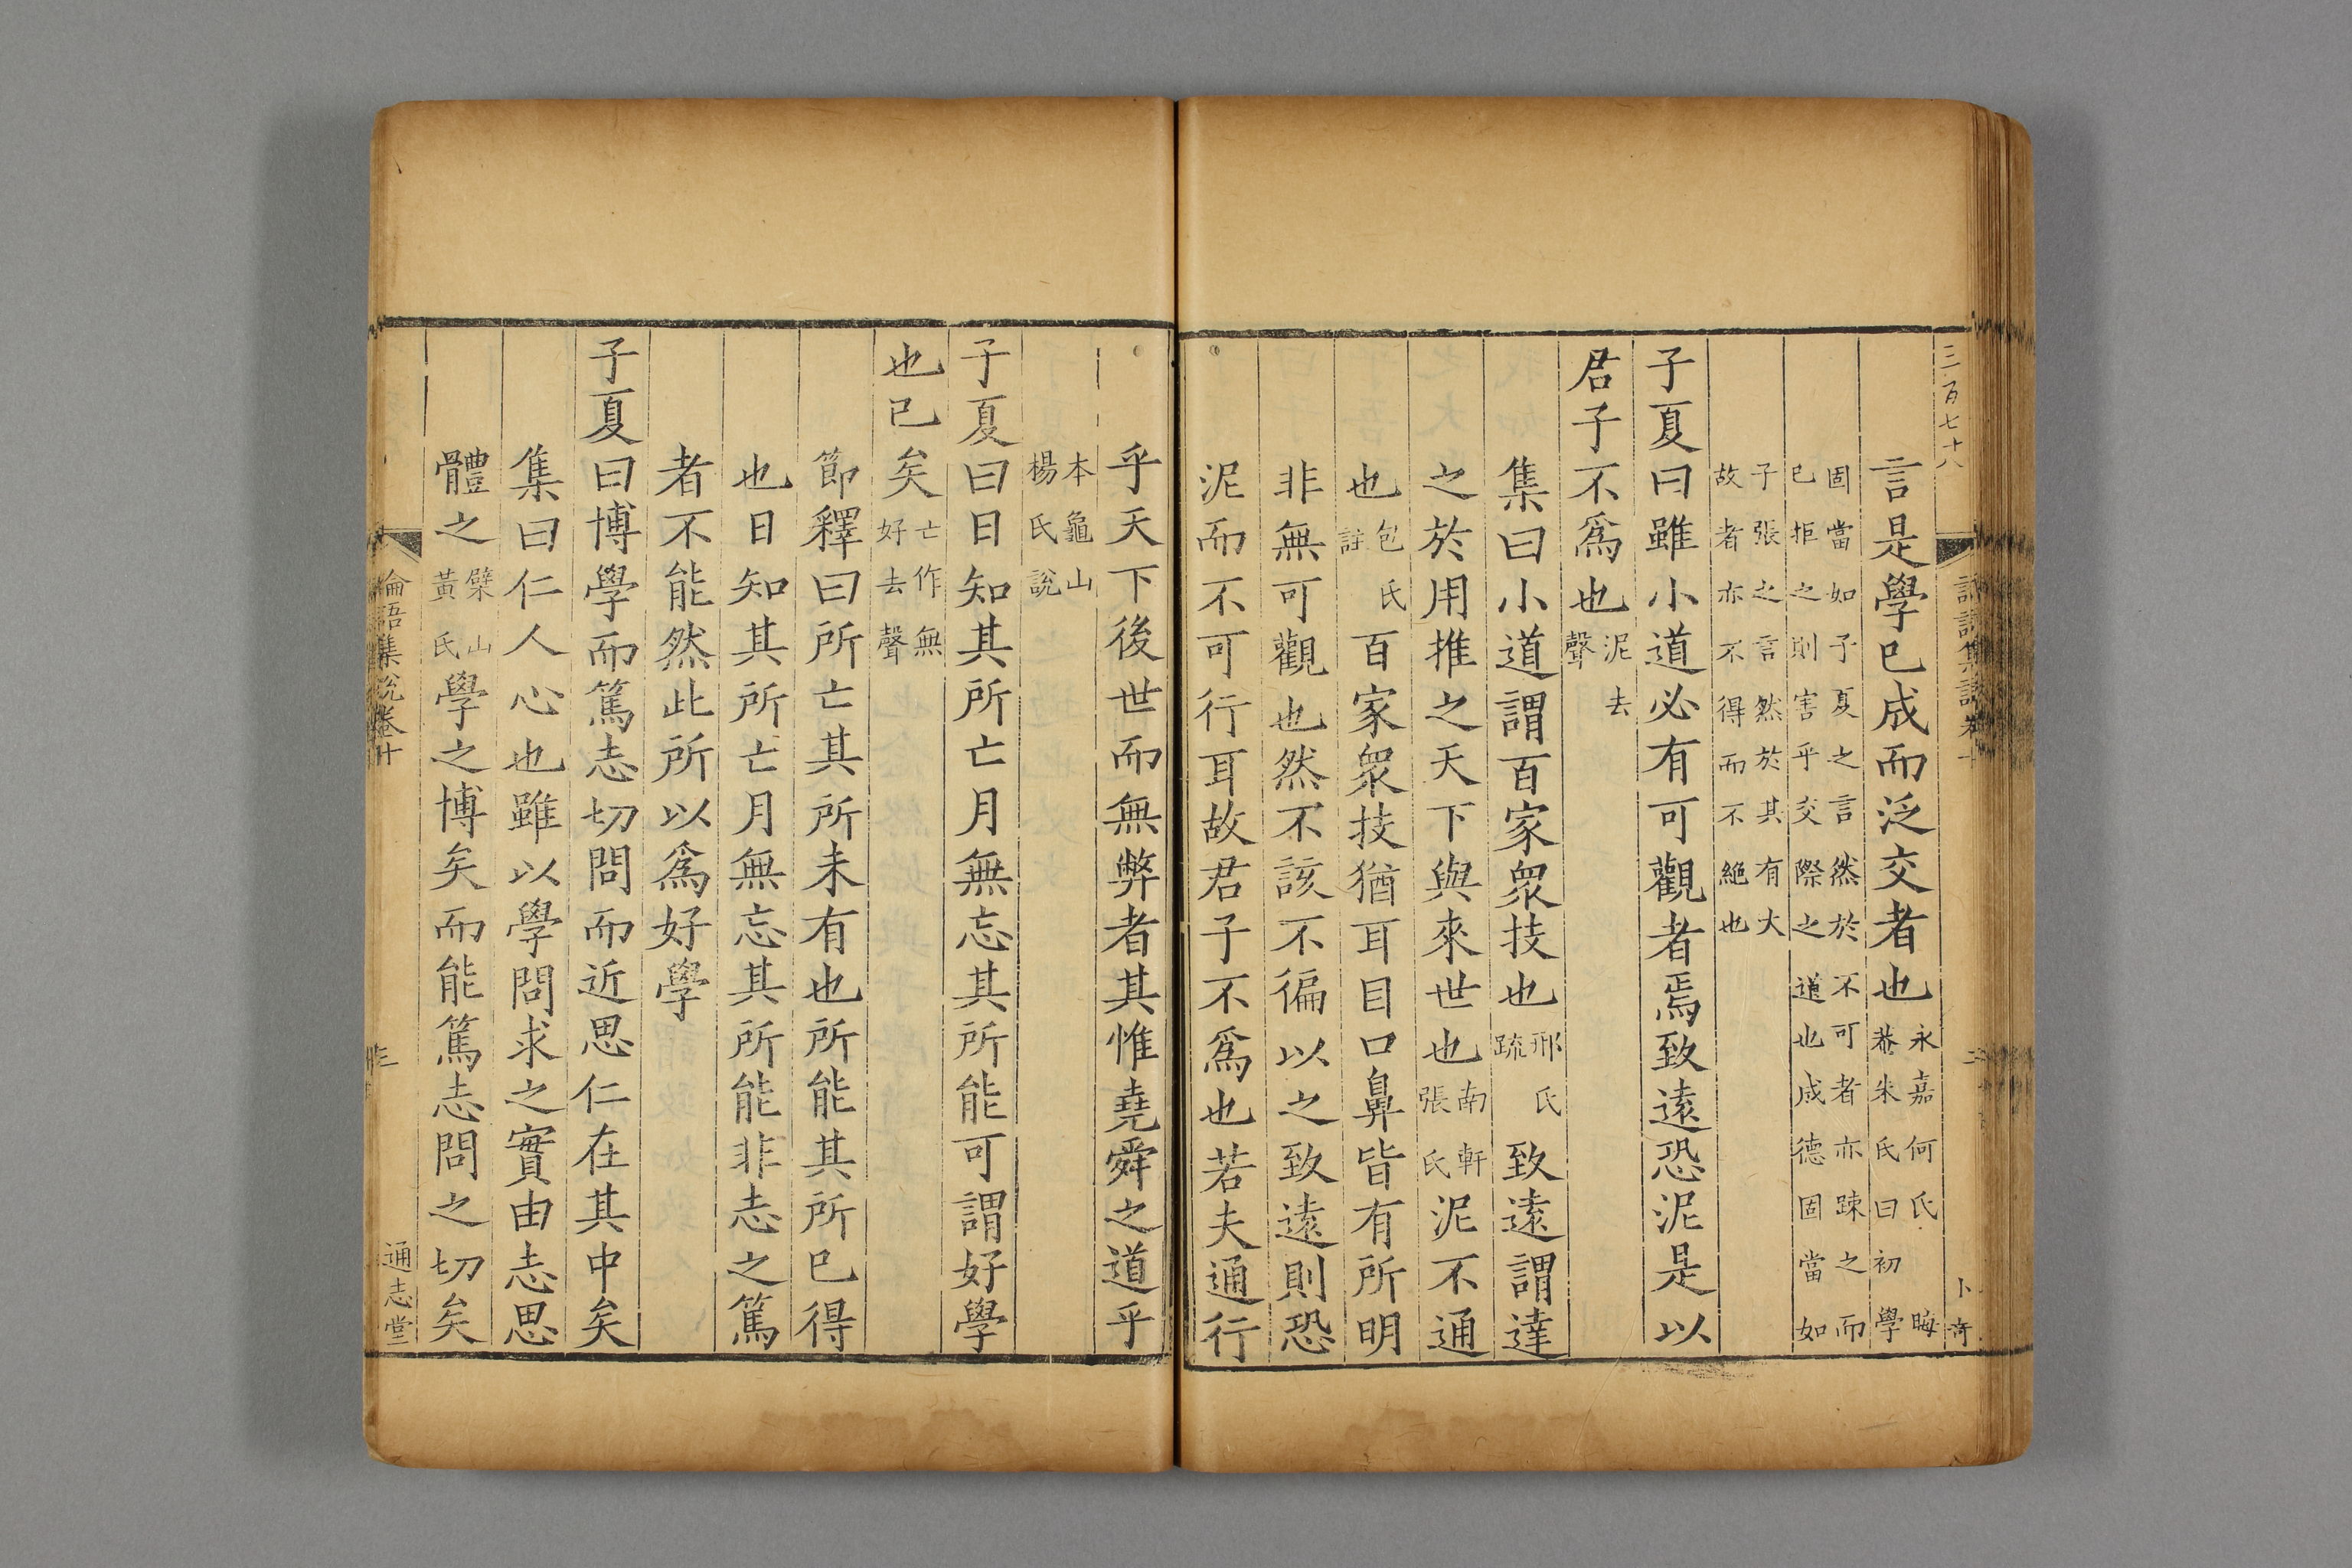 三百七十八
卜 渏
言是學已成而泛交者也永嘉何氏 晦菴朱氏曰初學
固當如子夏之言然於不可者亦踈之而已拒之則害乎交際之道也成德固當如
子張之言然於其有大故者亦不得而不絶也
子夏曰雖小道必有可觀者焉致遠恐泥是以
君子不爲也泥去聲
集曰小道謂百家衆技也邢氏疏致遠謂達
之於用推之天下與來世也南軒張氏泥不通
也包氏註百家衆技猶耳目口鼻皆有所明
非無可觀也然不該不徧以之致遠則恐
泥而不可行耳故君子不爲也若夫通行
乎天下後世而無弊者其惟堯舜之道乎
本龜山楊氏說
子夏曰日知其所亡月無忘其所能可謂好學
也已矣亡作無好去聲
節釋曰所亡其所未有也所能其所已得
也日知其所亡月無忘其所能非志之篤
者不能然此所以爲好學
子夏曰博學而篤志切問而近思仁在其中矣
集曰仁人心也雖以學問求之實由志思
體之檗山黃氏學之博矣而能篤志問之切矣
論語集說卷十
三
通志堂